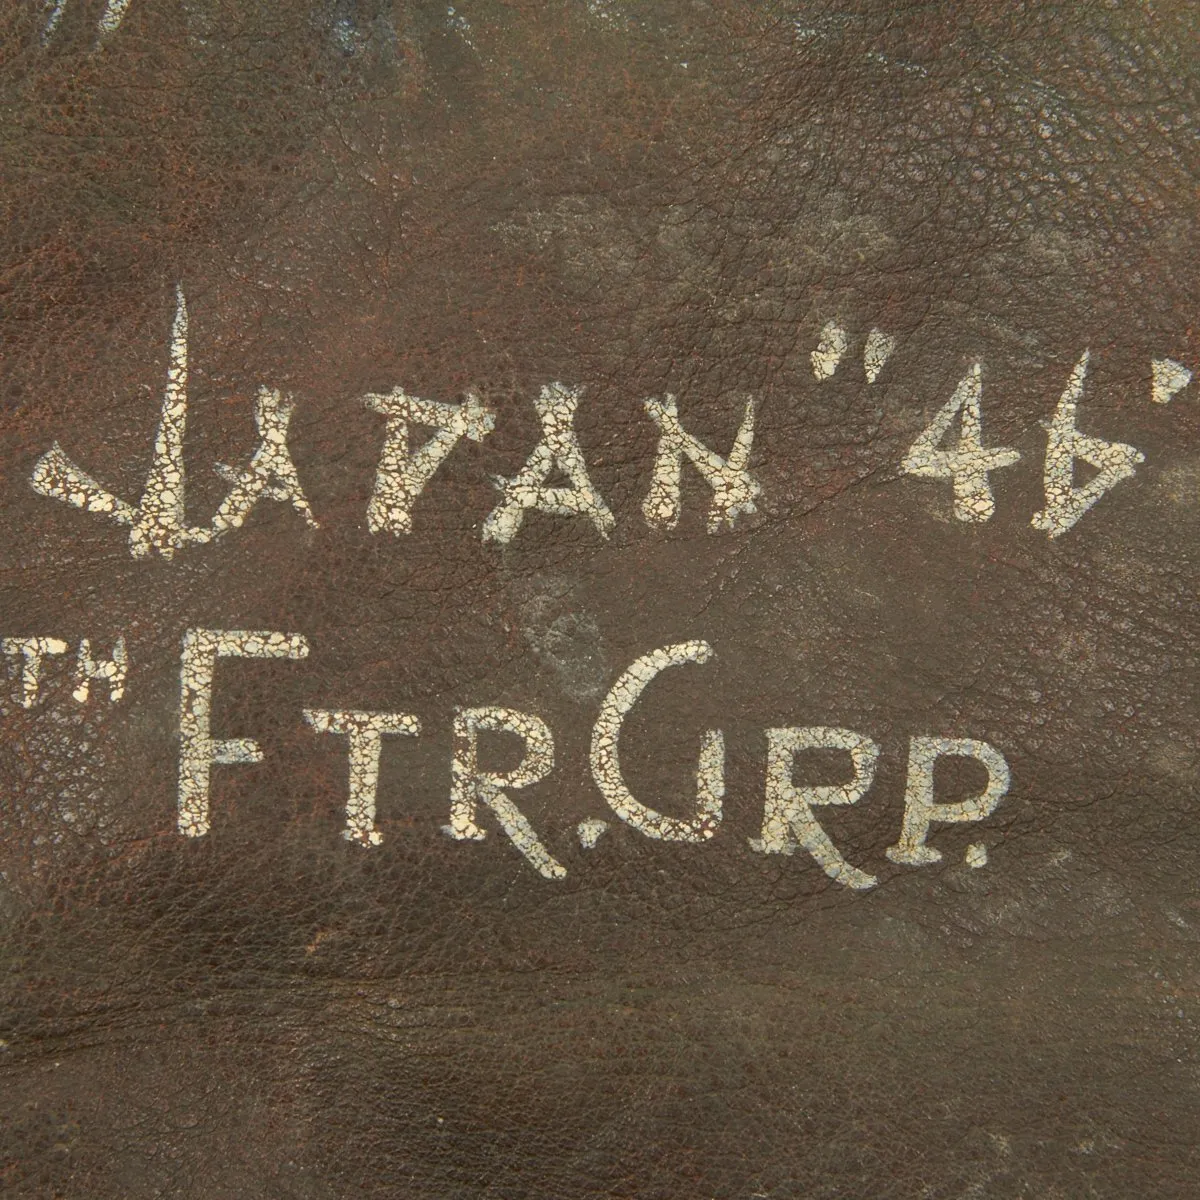 JAPAN "46"
TH FTR. GRP.